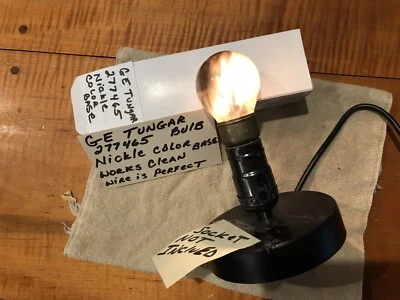 GE TUNGAR
277465
Nickle
COLOR
BASE
GE TUNGAR
277465 BULB
Nickle COLOR BASE
WORKS CLEAN
WIRE is PERFECT
SOCKET
NOT
INCLUDED